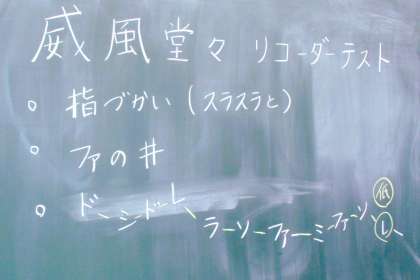 威風堂々 リコーダーテスト
○ 指づかい(スラスラと)
○ ファの#
○ ドーシードーレ、ラーソーファーミーファーソ、低レ